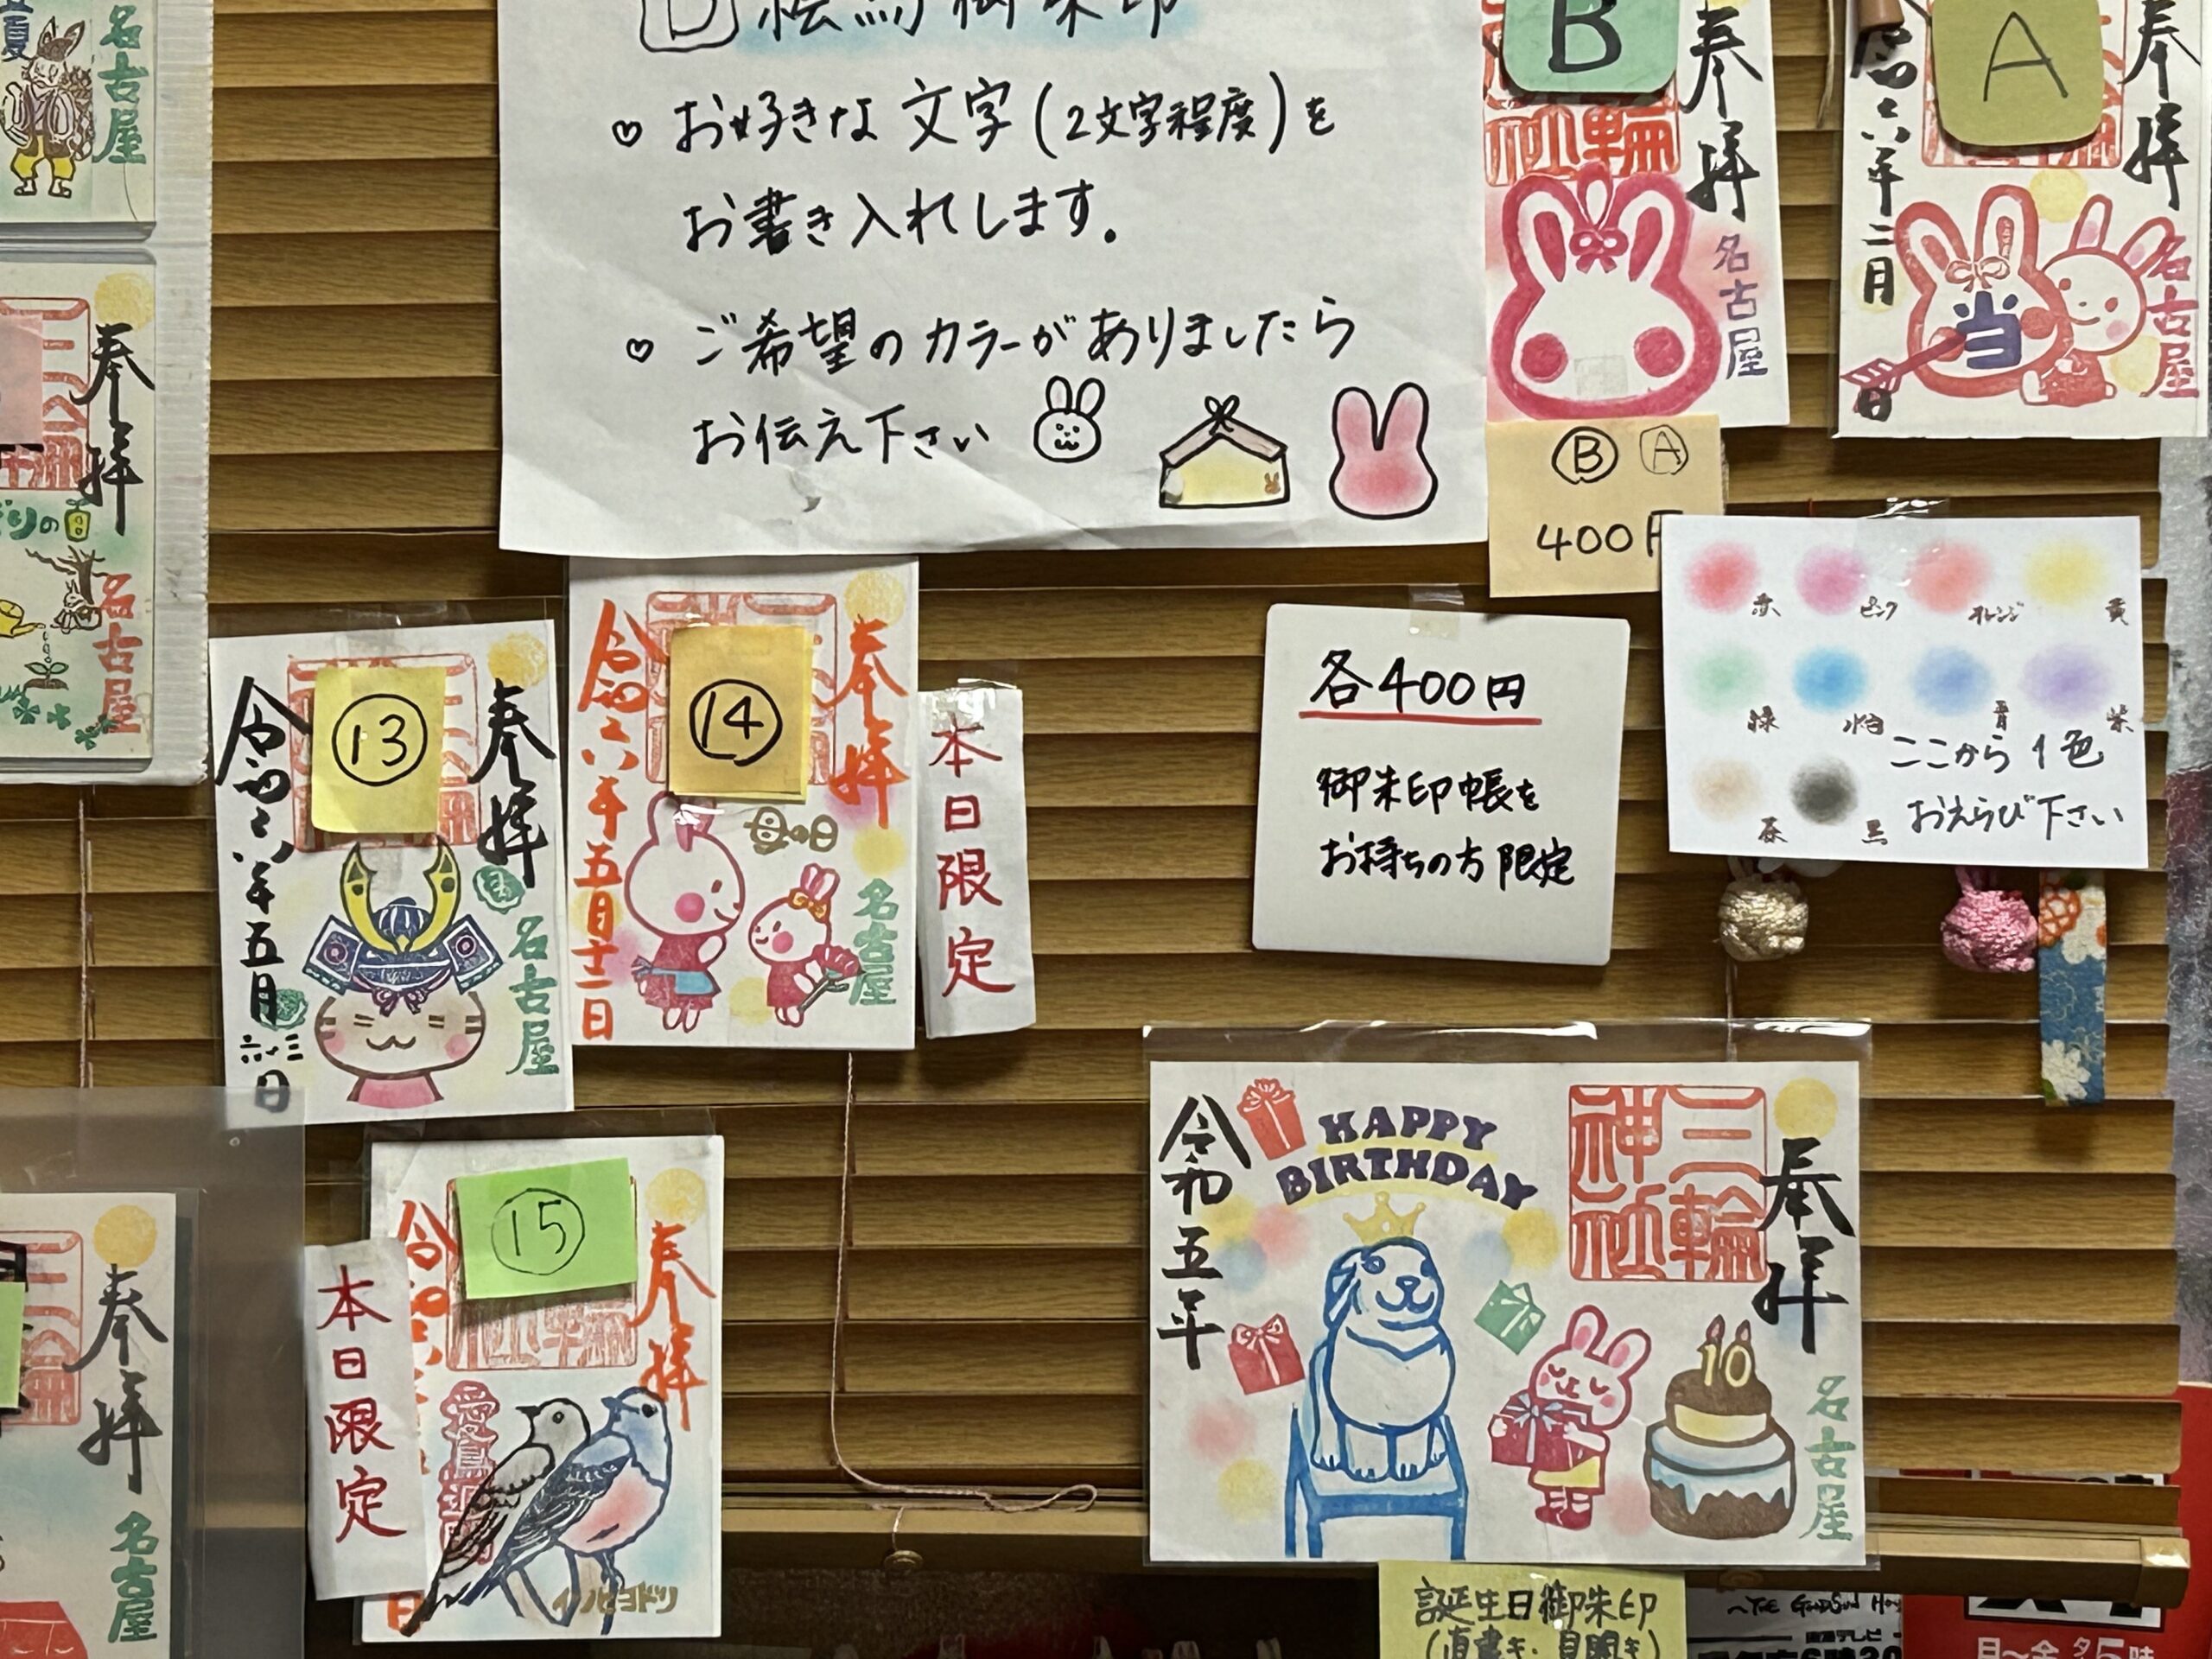 夏
名古屋
奉拝
名古屋
絵馬御朱印
♡ お好きな文字(2文字程度)を
お書き入れします。
♡ ご希望のカラーがありましたら
お伝え下さい
B
奉拝
名古屋
A
奉拝
六年二月
当
日
名古屋
Ⓑ Ⓐ
400円
赤 ピンク オレンジ 黄
緑 水色 青 紫
茶 黒
ここから1色
おえらび下さい
各400円
御朱印帳を
お持ちの方限定
⑬
奉拝
令和六年五月
日
名古屋
⑭
奉拝
令和六年五月十二日
母の日
名古屋
本日限定
⑮
奉拝
愛鳥週間
イソヒヨドリ
本日限定
奉拝
名古屋
奉拝
三輪神社
HAPPY
BIRTHDAY
令和五年
10
名古屋
誕生日御朱印
(直書き・見開き)
月〜金 夕5時